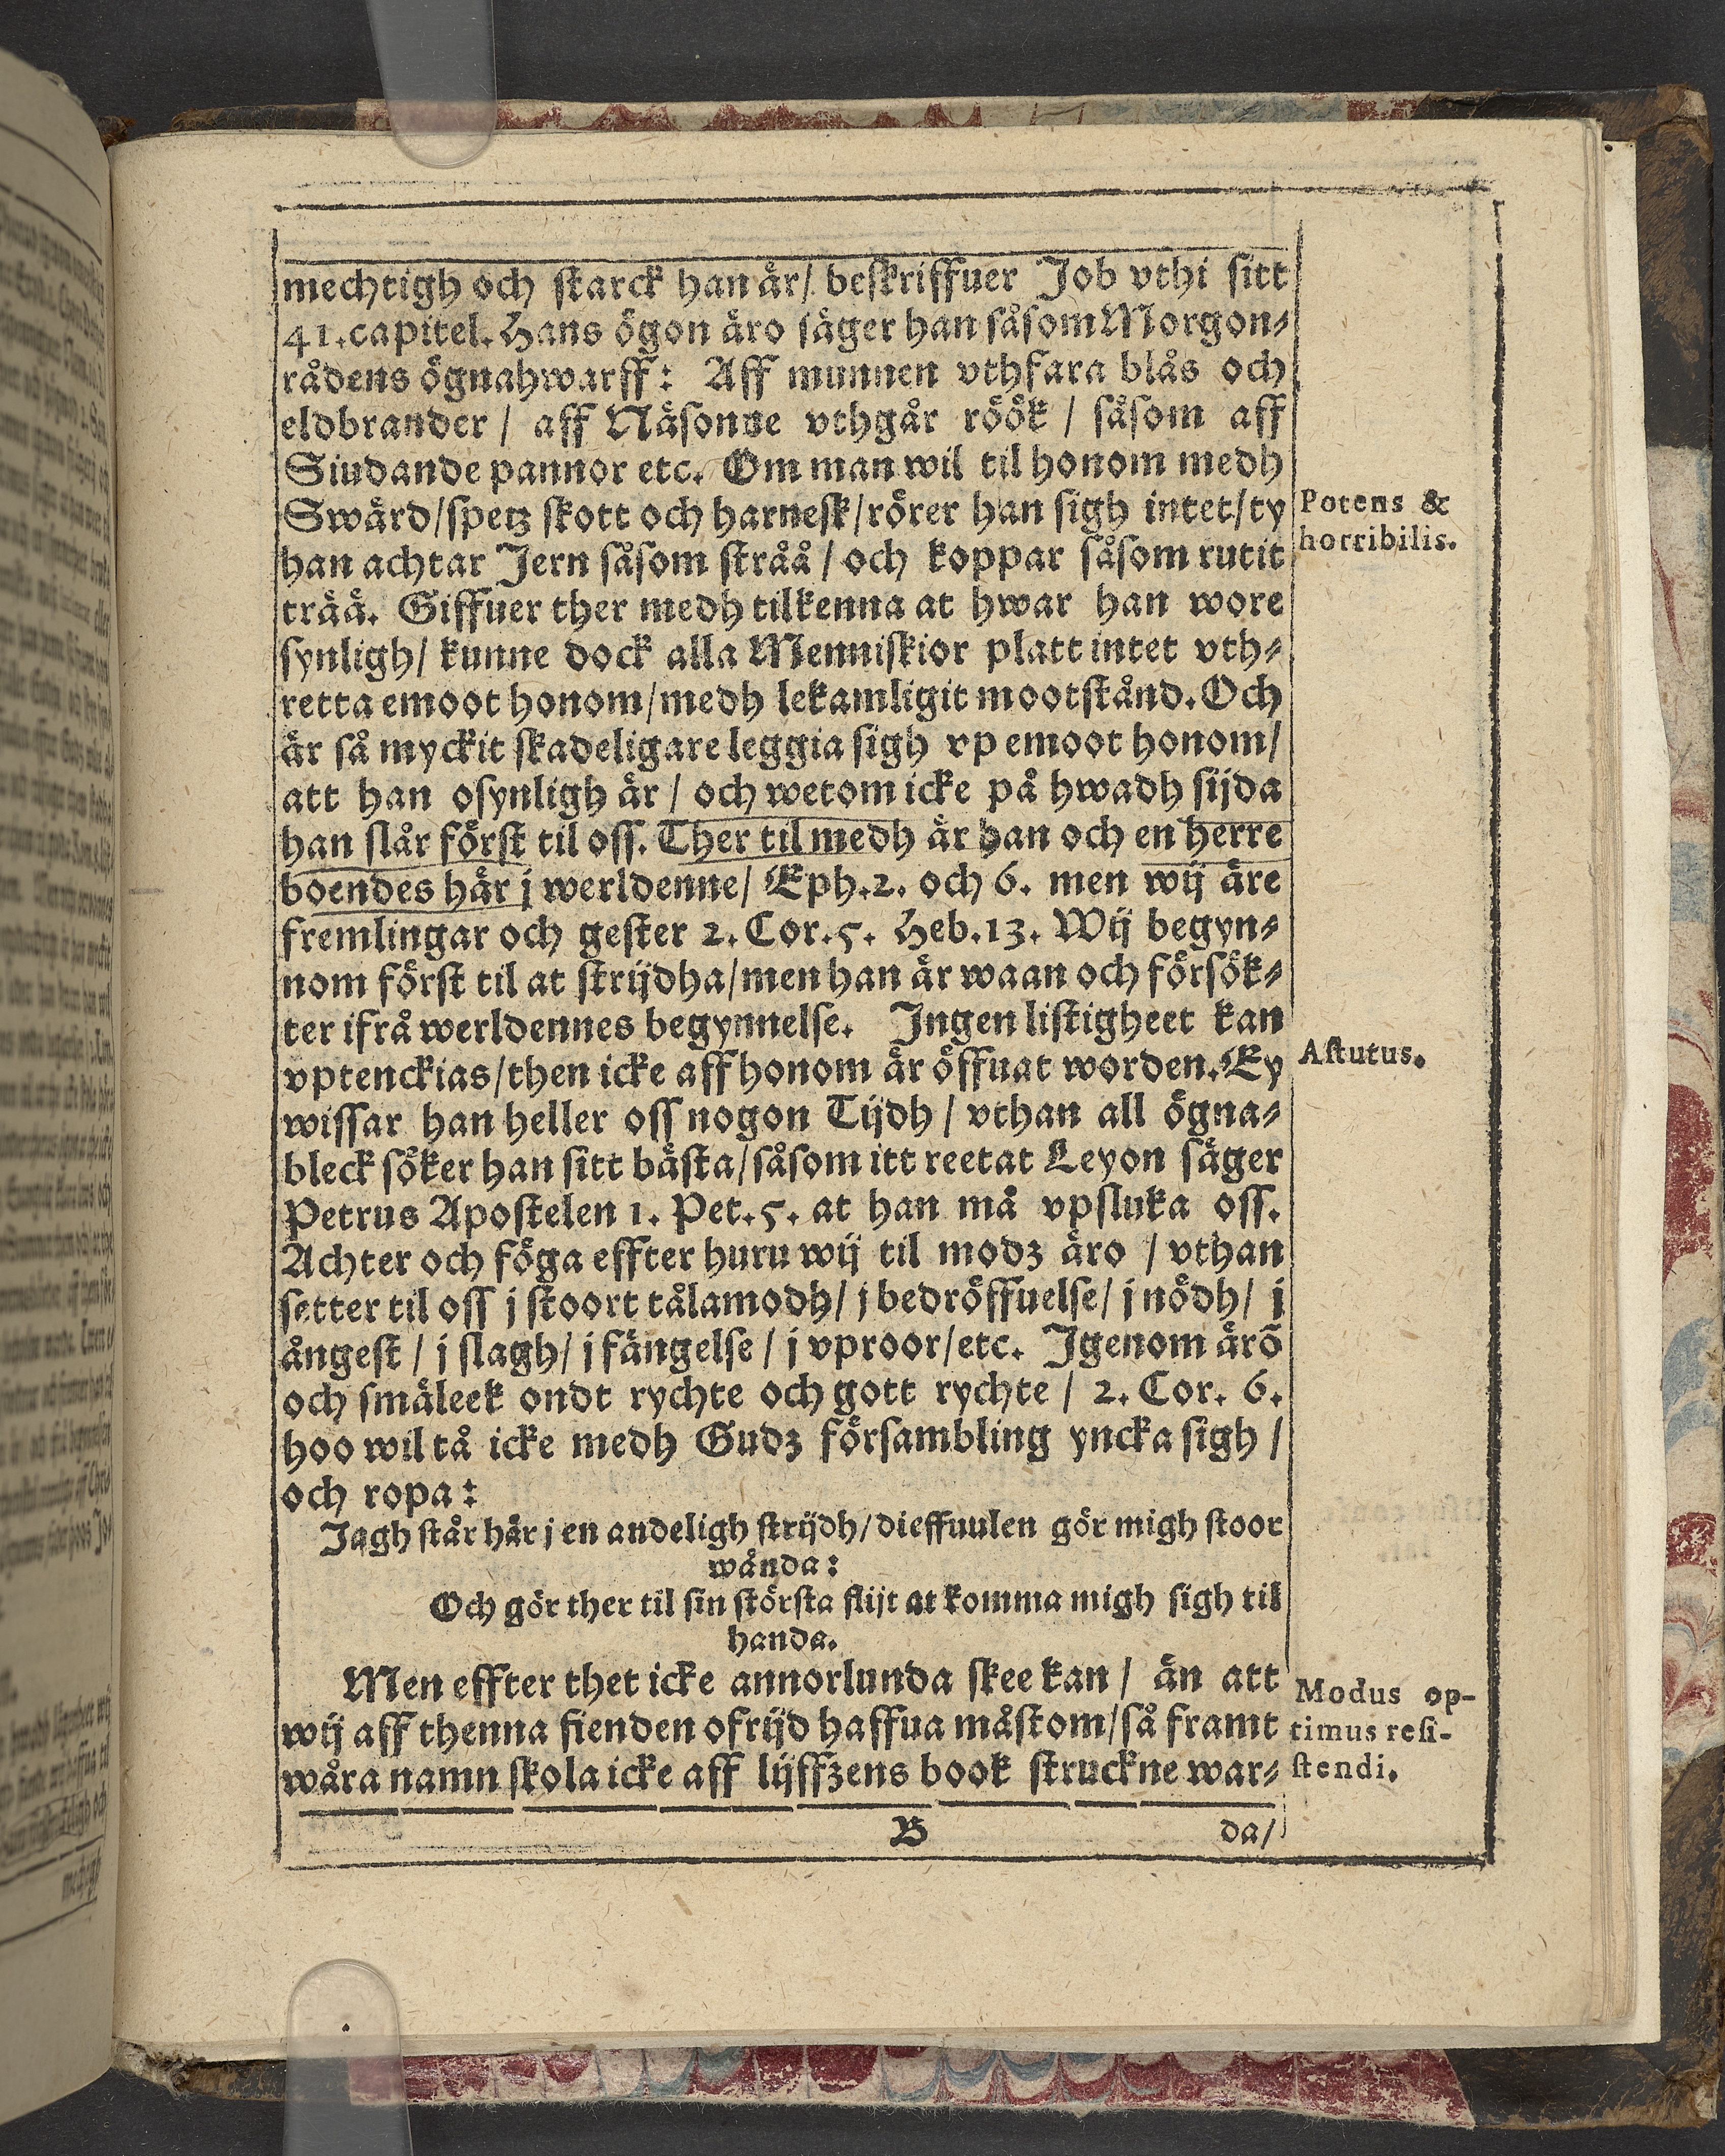 mechtigh och starck han är / beskriffuer Job vthi sitt
41. capitel. Hans ögon äro säger han såsom Morgon-
rådens ögnahwarff: Aff munnen vthfara blås och
eldbrander / aff Näsonne vthgår röök / såsom aff
Siudande pannor etc. Om man wil til honom medh
Swärd / spetz skott och harnesk / rörer han sigh intet / ty
Potens &
han achtar Jern såsom stråå / och koppar såsom rutit
horribilis.
trää. Giffuer ther medh tilkenna at hwar han wore
synligh / kunne dock alla Menniskior platt intet vth-
retta emoot honom / medh lekamligit mootstånd. Och
är så myckit skadeligare leggia sigh vp emoot honom /
att han osynligh är / och wetom icke på hwadh sijda
han slår först til oss. Ther til medh är han och en herre
boendes här j werldenne / Eph. 2. och 6. men wij äre
fremlingar och gester 2. Cor. 5. Heb. 13. Wij begyn-
nom först til at strijdha / men han är waan och försök-
ter ifrå werldennes begynnelse. Ingen listigheet kan
vptenckias / then icke aff honom är öffuat worden. Ey
Astutus.
wissar han heller oss nogon Tijdh / vthan all ögna-
bleck söker han sitt bästa / såsom itt reetat Leyon säger
Petrus Apostelen 1. Pet. 5. at han må vpsluka oss.
Achter och föga effter huru wij til modz äro / vthan
setter til oss j stoort tålamodh / j bedröffuelse / j nödh / j
ångest / j slagh / j fängelse / j vproor / etc. Igenom ärö
och smäleek ondt rychte och gott rychte / 2. Cor. 6.
hoo wil tå icke medh Gudz försambling yncka sigh /
och ropa:
Jagh står här j en andeligh strijdh / dieffuulen gör migh stoor
wånda:
Och gör ther til sin största flijt at komma migh sigh til
handa.
Men effter thet icke annorlunda skee kan / än att
Modus op-
wij aff thenna fienden ofrijd haffua måstom / så framt
timus resi-
wåra namn skola icke aff lijffzens book struckne war-
stendi.
B
da /